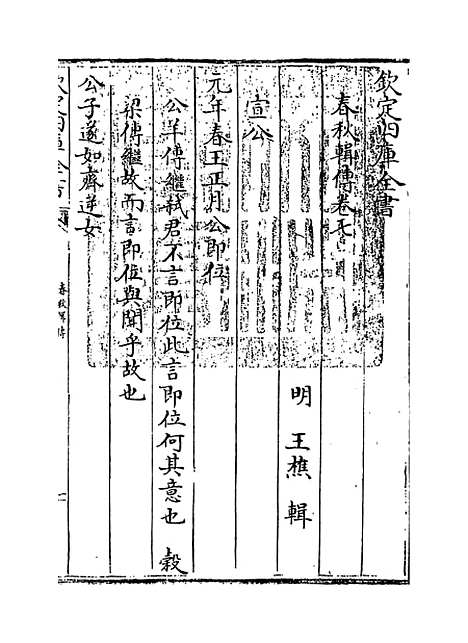 欽定四庫全書
春秋輯傳卷七
明 王樵 輯
宣公
元年春王正月公即位
公羊傳繼弒君不言即位此言即位何其意也 穀
梁傳繼故而言即位與聞乎故也
公子遂如齊逆女
欽定四庫全書
春秋輯傳
一